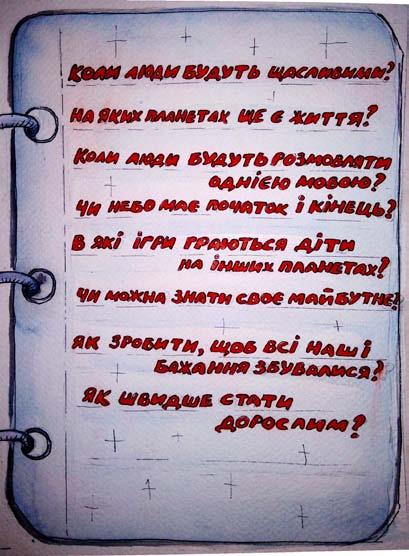 КОЛИ ЛЮДИ БУДУТЬ ЩАСЛИВИМИ?
НА ЯКИХ ПЛАНЕТАХ ЩЕ Є ЖИТТЯ?
КОЛИ ЛЮДИ БУДУТЬ РОЗМОВЛЯТИ
ОДНІЄЮ МОВОЮ?
ЧИ НЕБО МАЄ ПОЧАТОК І КІНЕЦЬ?
В ЯКІ ІГРИ ГРАЮТЬСЯ ДІТИ
НА ІНШИХ ПЛАНЕТАХ?
ЧИ МОЖНА ЗНАТИ СВОЄ МАЙБУТНЄ?
ЯК ЗРОБИТИ, ЩОБ ВСІ НАШІ
БАЖАННЯ ЗБУВАЛИСЯ?
ЯК ШВИДШЕ СТАТИ
ДОРОСЛИМ?